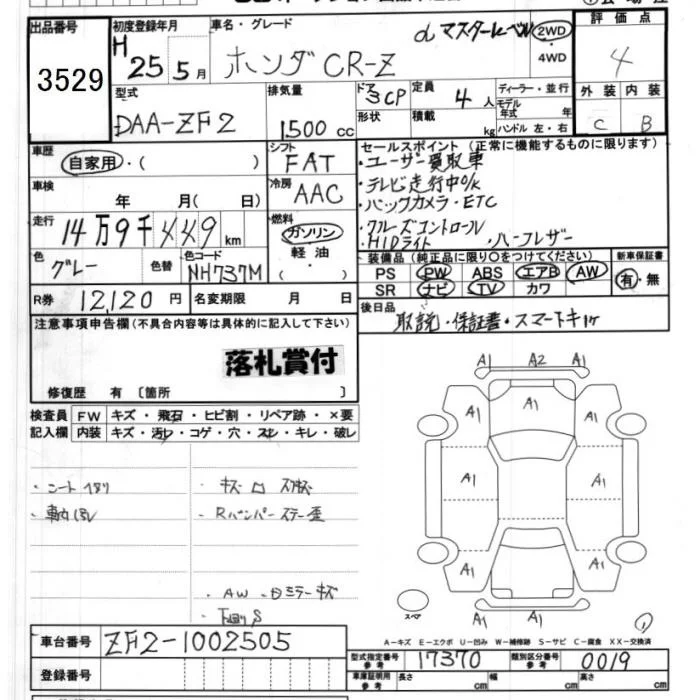 出品番号
3529
初度登録年月
H 25 5 月
車名・グレード
ホンダ CR-Z
αマスターレーベル
2WD
・
4WD
評価点
4
外装 内装
C B
型式
DAA-ZF2
排気量
1500 cc
ドア 3CP
形状
定員 4 人
積載 kg
ディーラー・並行
モデル年式 年
ハンドル 左・右
車歴
自家用・( )
シフト FAT
車検 年 月( 日)
冷房 AAC
走行 14万9千449 km
燃料
ガソリン
軽油
・( )
色 グレー 色替
色コード NH737M
R券 12,120 円
名変期限 月 日
セールスポイント(正常に機能するものに限ります)
・ユーザー買取車
・テレビ走行中O/K
・バックカメラ・ETC
・クルーズコントロール
・HIDライト ・ハーフレザー
装備品(純正品に限り○をつけてください)
PS PW ABS エアB AW
SR ナビ TV カワ
新車保証書
有・無
後日品
取説・保証書・スマートキー1ケ
注意事項申告欄(不具合内容等は具体的に記入して下さい)
落札賞付
修復歴 有 〔箇所 〕
検査員 FW キズ・飛石・ヒビ割・リペア跡・×要
記入欄 内装 キズ・汚レ・コゲ・穴・スレ・キレ・破レ
・Rバンパーステー歪
・下廻りS
A1 A2 A1
A1 A1 A1
A1 A1
A1 A1
A1 A1 A1
スペア
1
A-キズ E-エクボ U-凹み W-補修跡 S-サビ C-腐食 XX-交換済
車台番号 ZF2-1002505
登録番号
型式指定番号 参考 17370
類別区分番号 参考 0019
車庫証明用 参考 長さ cm 幅 cm 高さ cm